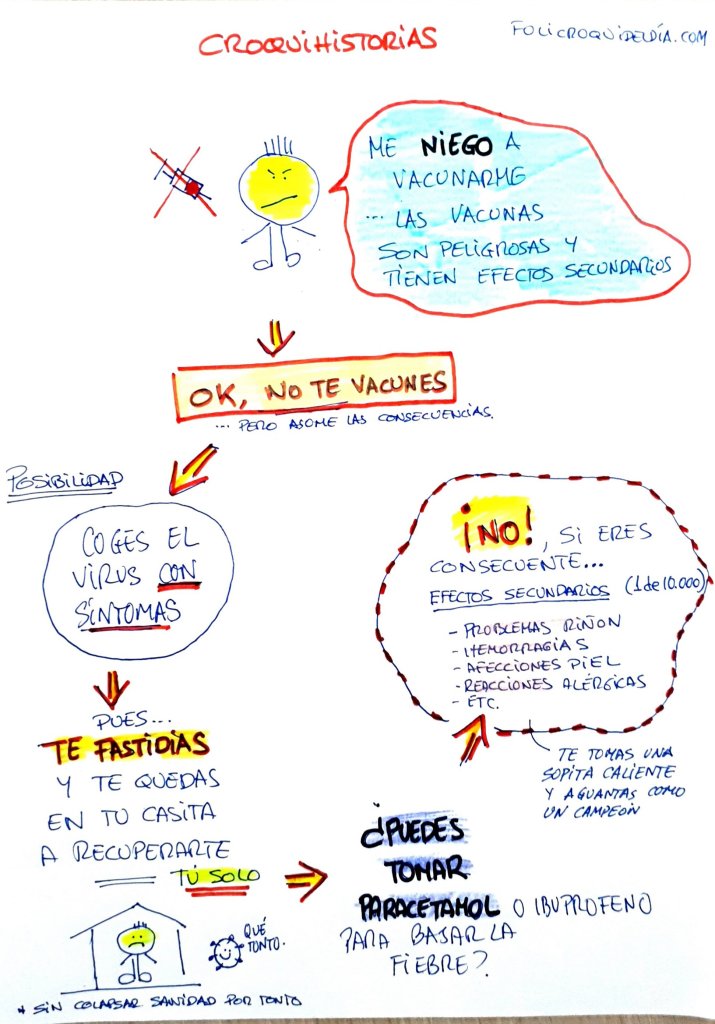 CROQUIHISTORIAS
FOLICROQUIDELDÍA.COM
ME NIEGO A
VACUNARME
... LAS VACUNAS
SON PELIGROSAS Y
TIENEN EFECTOS SECUNDARIOS
OK, NO TE VACUNES
... PERO ASUME LAS CONSECUENCIAS.
POSIBILIDAD
COGES EL
VIRUS CON
SÍNTOMAS
PUES...
TE FASTIDIAS
Y TE QUEDAS
EN TU CASITA
A RECUPERARTE
TÚ SOLO
QUÉ
TONTO.
* SIN COLAPSAR SANIDAD POR TONTO
¿PUEDES
TOMAR
PARACETAMOL O IBUPROFENO
PARA BAJAR LA
FIEBRE?
¡NO!, SI ERES
CONSECUENTE...
EFECTOS SECUNDARIOS (1 de 10.000)
- PROBLEMAS RIÑON
- HEMORRAGIAS
- AFECCIONES PIEL
- REACCIONES ALÉRGICAS
- ETC.
TE TOMAS UNA
SOPITA CALIENTE
Y AGUANTAS COMO
UN CAMPEÓN